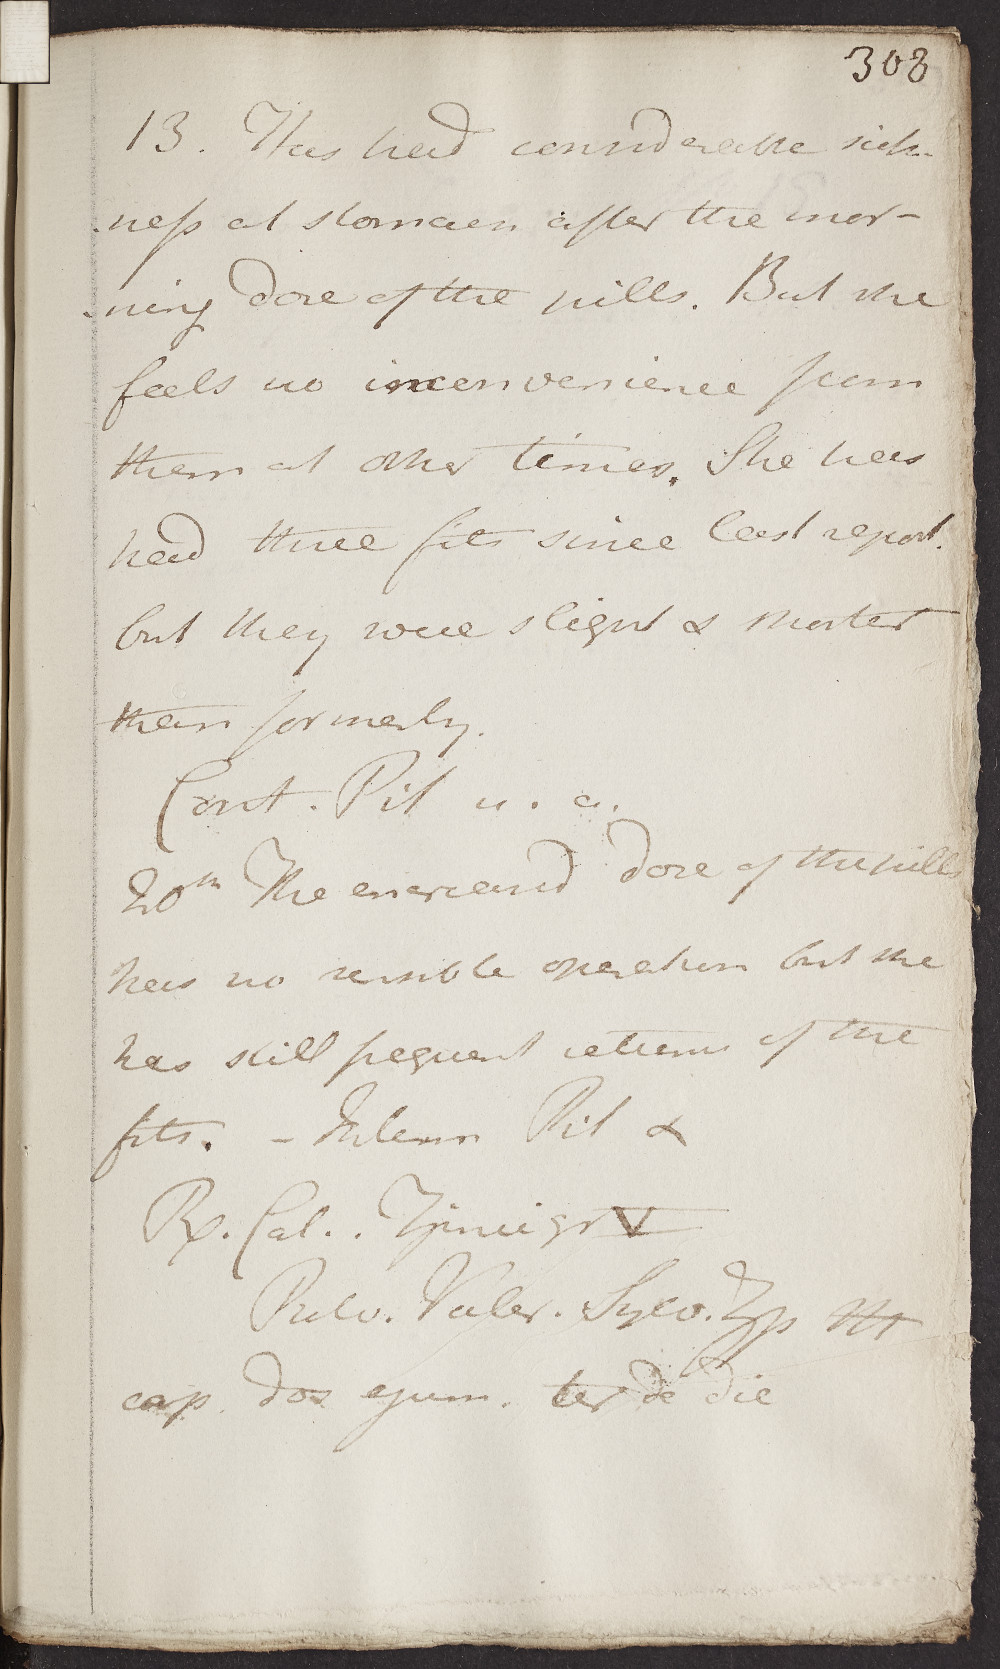 308
13. Has had considerable sick-
ness at stomach after the mor-
ning dose of the pills. But she
feels no inconvenience from
them at other times. She has
had three fits since last report.
but they were slight & shorter
than formerly.
Cont. Pil u. a.
20th The encreased dose of the pills
has no sensible operation but she
has still frequent returns of the
fits. - Pil &
℞. Cal. Zinci gr V
Pulv. Valer. Sylv. ʒſs M
cap. dos ejusm. ter de die